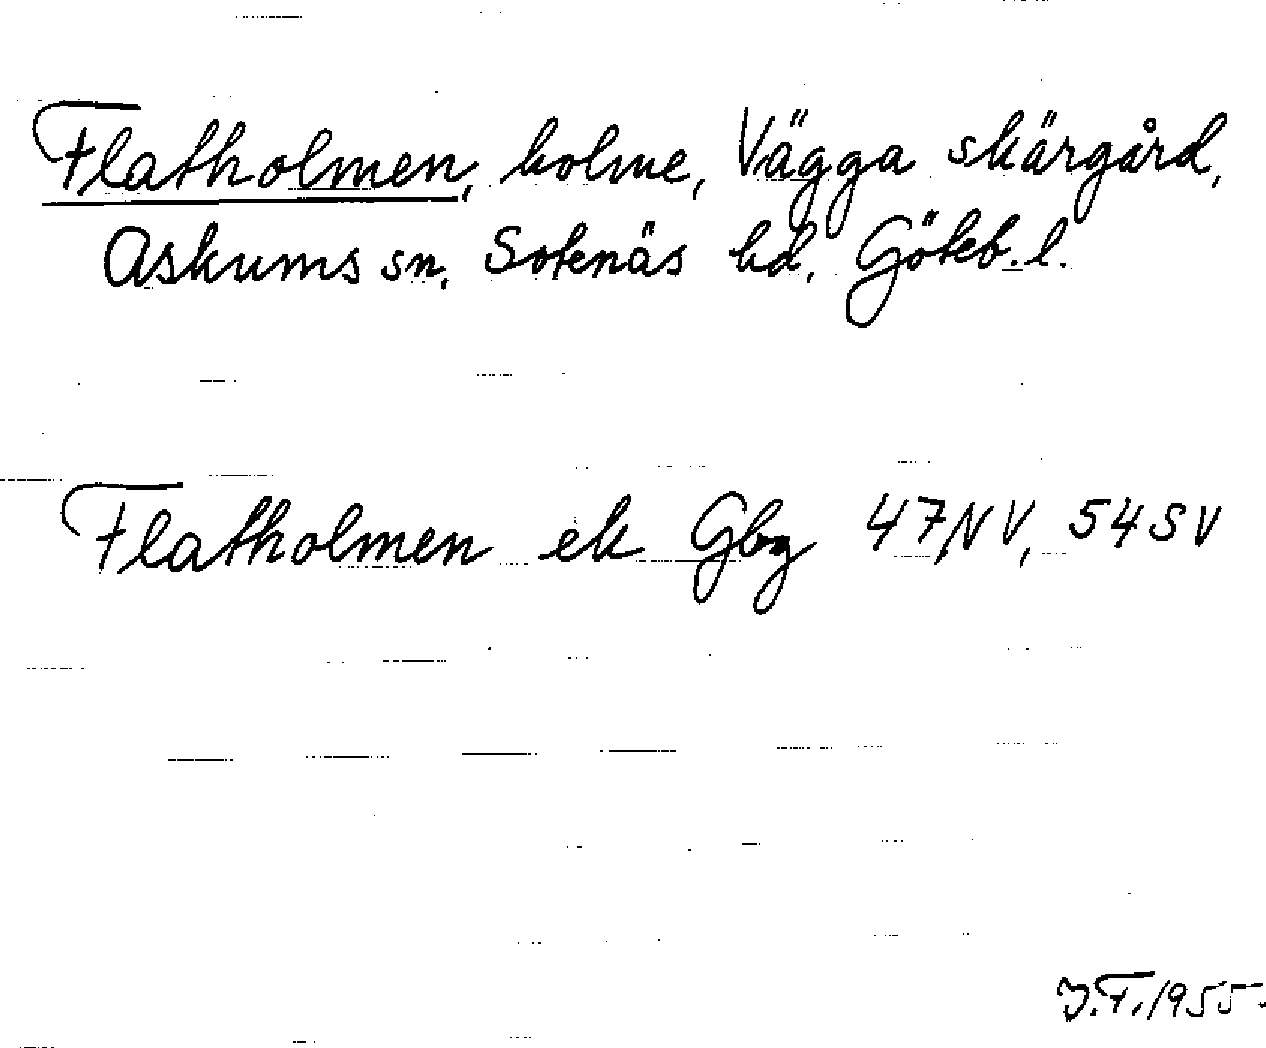 Flatholmen, holme, Vägga skärgård,
Askums sn, Sotenäs hd, Göteb. l.
Flatholmen ek Gbg 47NV, 54SV
J.F. 1955.